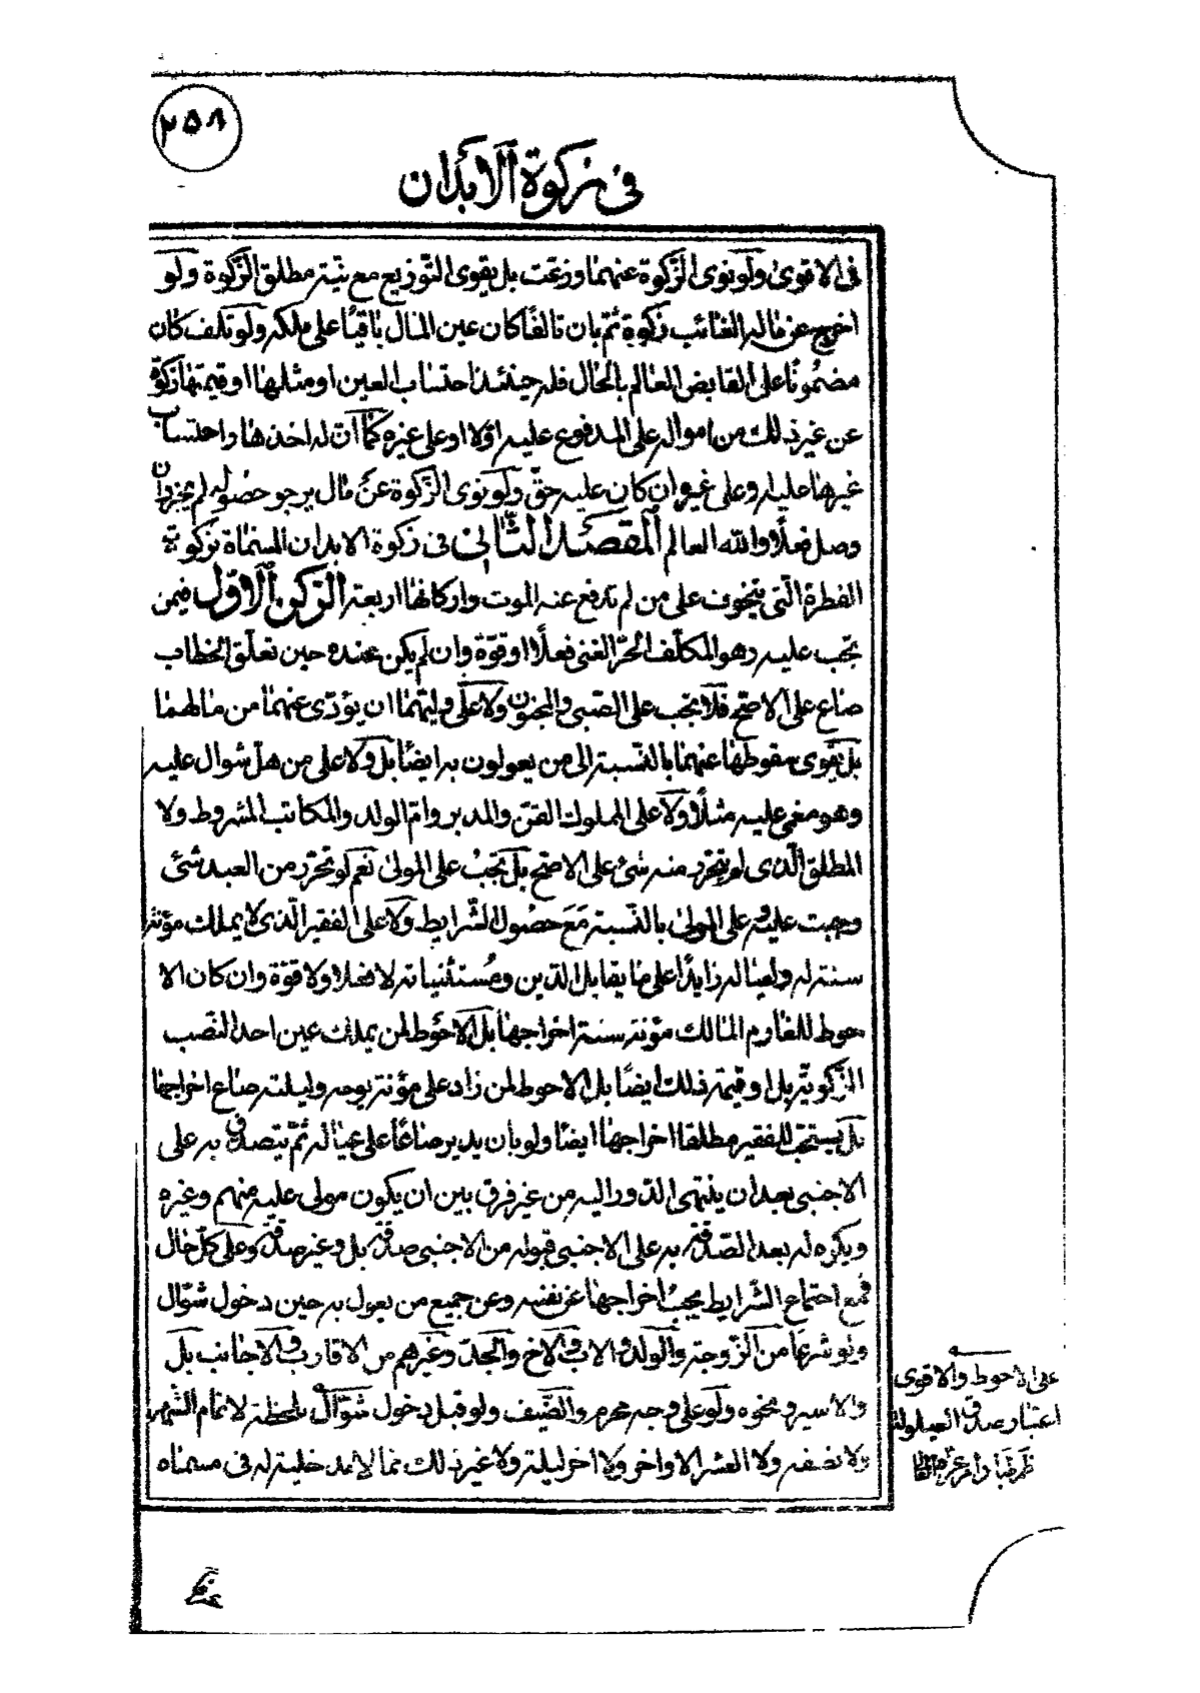 ٢٥٨
في زكوة الأبدان
في الاقوى ولو نوى الزّكوة عنهما وزعت بل يقوى التّوزيع مع نيّة مطلق الزّكوة ولو
اخرج عن ماله الغائب زكوة ثمّ بان تالفًا كان عين المال باقيًا على ملكه ولو تلف كان
مضمُونًا على القابض العالم بالحال فله حينئذ احتساب العين او مثلها او قيمتها زكوة
عن غير ذلك من امواله على المدفوع عليه اوّلا او على غيره كما انّ له اخذها واحتساب
غيرها عليه وعلى غيره ان كان عليه حقّ ولو نوى الزّكوة عن مال يرجو حصُوله لم يجز وان
وصل فعلًا والله العالم المقصَد الثّاني في زكوة الابدان المسمّاة بزكوة
الفطرة الّتي يتخوف على من لم تدفع عنه الموت واركانها اربعة الرّكن الاوّل فيمن
تجب عليه وهو المكلّف الحرّ الغنى فعلًا او قوّة وان لم يكن عنده حين تعلّق الخطاب
صاع على الاصحّ فلا تجب على الصّبي والمجنون ولا على وليّهما ان يؤدّى عنهما من مالهما
بل يقوى سقوطها عنهما بالنّسبة الى من يعولون به ايضًا بل ولا على من هلّ شوال عليه
وهو مغمى عليه مثلًا ولا على المملوك القنّ والمدبر وامّ الولد والمكاتب المشروط ولا
المطلق الّذى لم يتحرّر منه شئ على الاصحّ بل تجبُ على المولى نعم لو تحرّر من العبد شئ
وجبت عليه وعلى المولى بالنّسبة مَعَ حصُول الشّرايط ولا على الفقير الّذى لا يملك مؤنة
سنة له ولعياله زايدًا على ما يقابل الدّين ومُستثنياته لا فعلا ولا قوّة وان كان الا
حوط للغارم المالك مؤنة سنة اخراجها بل الاحوَط لمن يملك عين احد النّصب
الزّكويّة بل او قيمة ذلك ايضًا بل الاحوط لمن زاد على مؤنة يومه وليلته صاع اخراجها
بل يستحبّ للفقير مطلقا اخراجها ايضًا ولو بان يدير صاعًا على عياله ثمّ يتصدق به على
الاجنبى بعد ان ينتهى الدّور اليه من غير فرق بين ان يكون مولى عليه منهم وغيره
ويكره له بعد الصّدقة به على الاجنبى قبوله من الاجنبى صدقة بل وغير صدقة وعلى كلّ حال
فمع اجتماع الشّرايط يجبُ اخراجها عن نفسه وعن جميع من يعول به حين دخول شوّال
ولو شرعًا من الزّوجة والولد والاب والاخ والجدّ وغيرهم من الاقارب والاجانب بل
والاسير ونحوه ولو على وجه محرم والضّيف ولو قبل دخول شوّال بلحظة لا تمام الشّهر
ولا نصفه ولا العشر الاواخر ولا اخر ليلة ولا غير ذلك ممّا لا مدخليّة له في مسمّاه
على الاحوط والاقوى
اعتبار صدق العيلولة